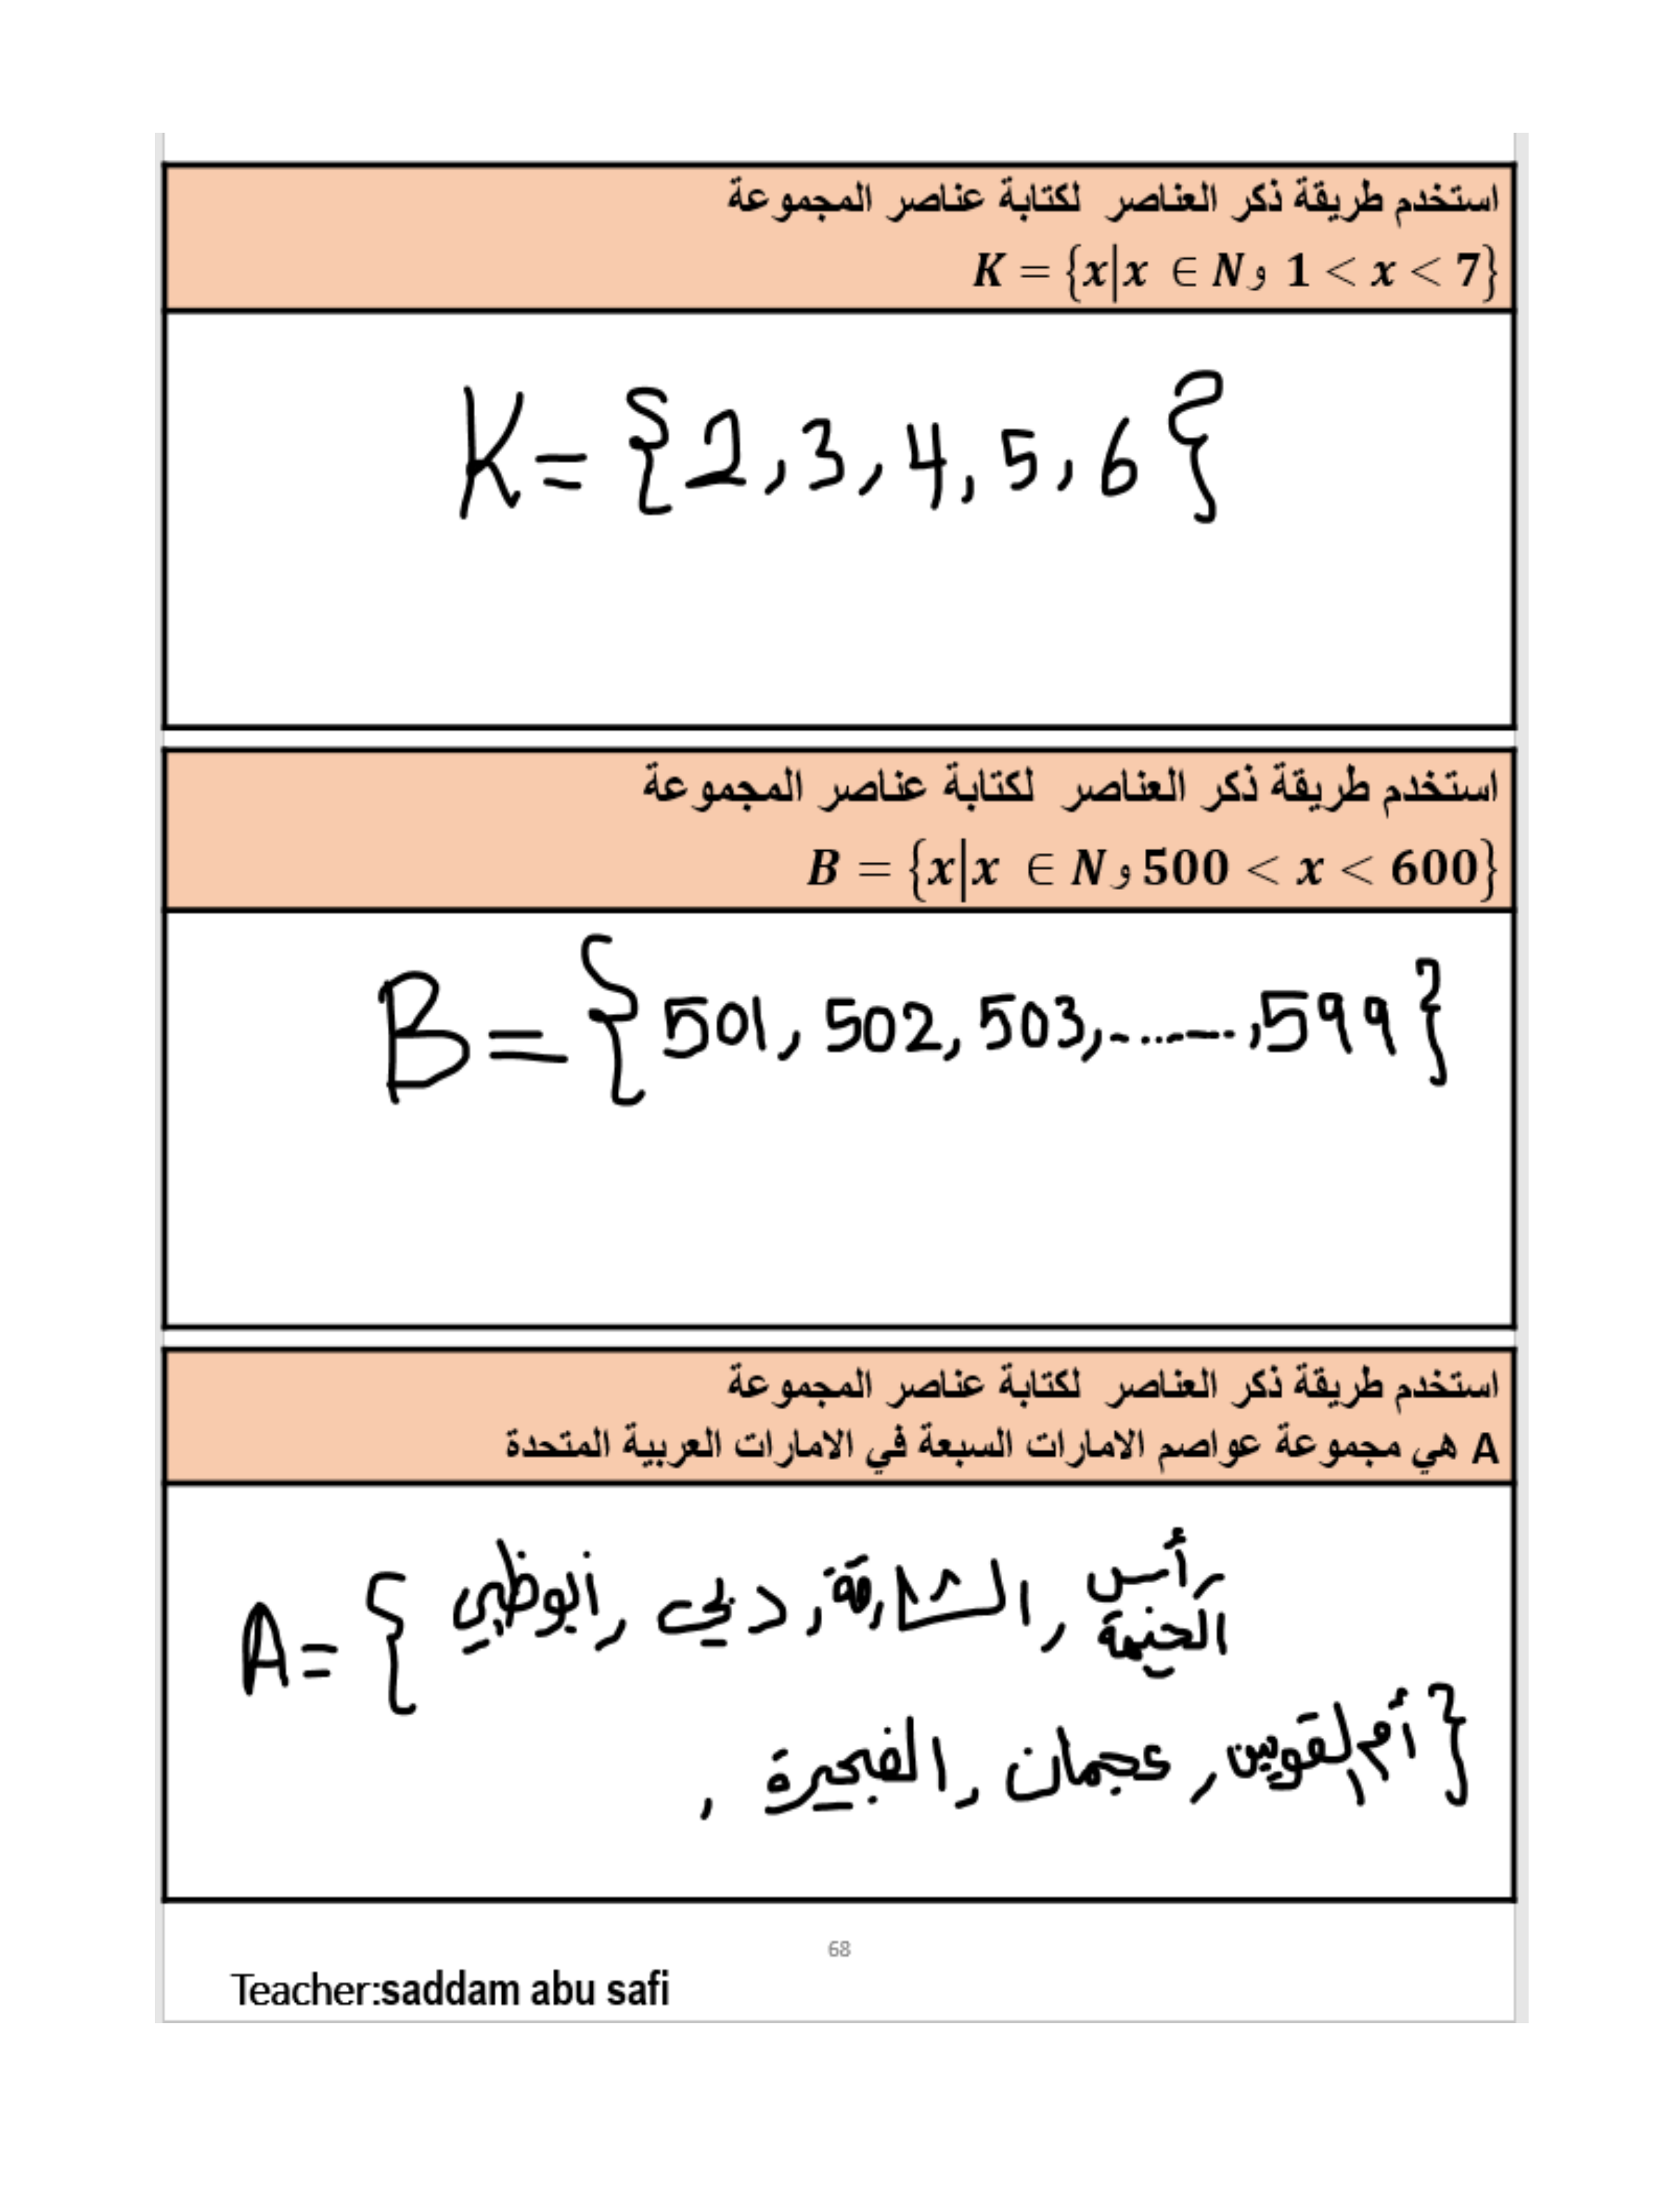 استخدم طريقة ذكر العناصر لكتابة عناصر المجموعة
K = {x|x ∈ N و 1 < x < 7}
K = {2, 3, 4, 5, 6}
استخدم طريقة ذكر العناصر لكتابة عناصر المجموعة
B = {x|x ∈ N و 500 < x < 600}
B = {501, 502, 503, ........, 599}
استخدم طريقة ذكر العناصر لكتابة عناصر المجموعة
A هي مجموعة عواصم الامارات السبعة في الامارات العربية المتحدة
A = { أبوظبي , دبي , الشارقة , رأس الخيمة
, الفجيرة , عجمان , أم القوين }
68
Teacher:saddam abu safi